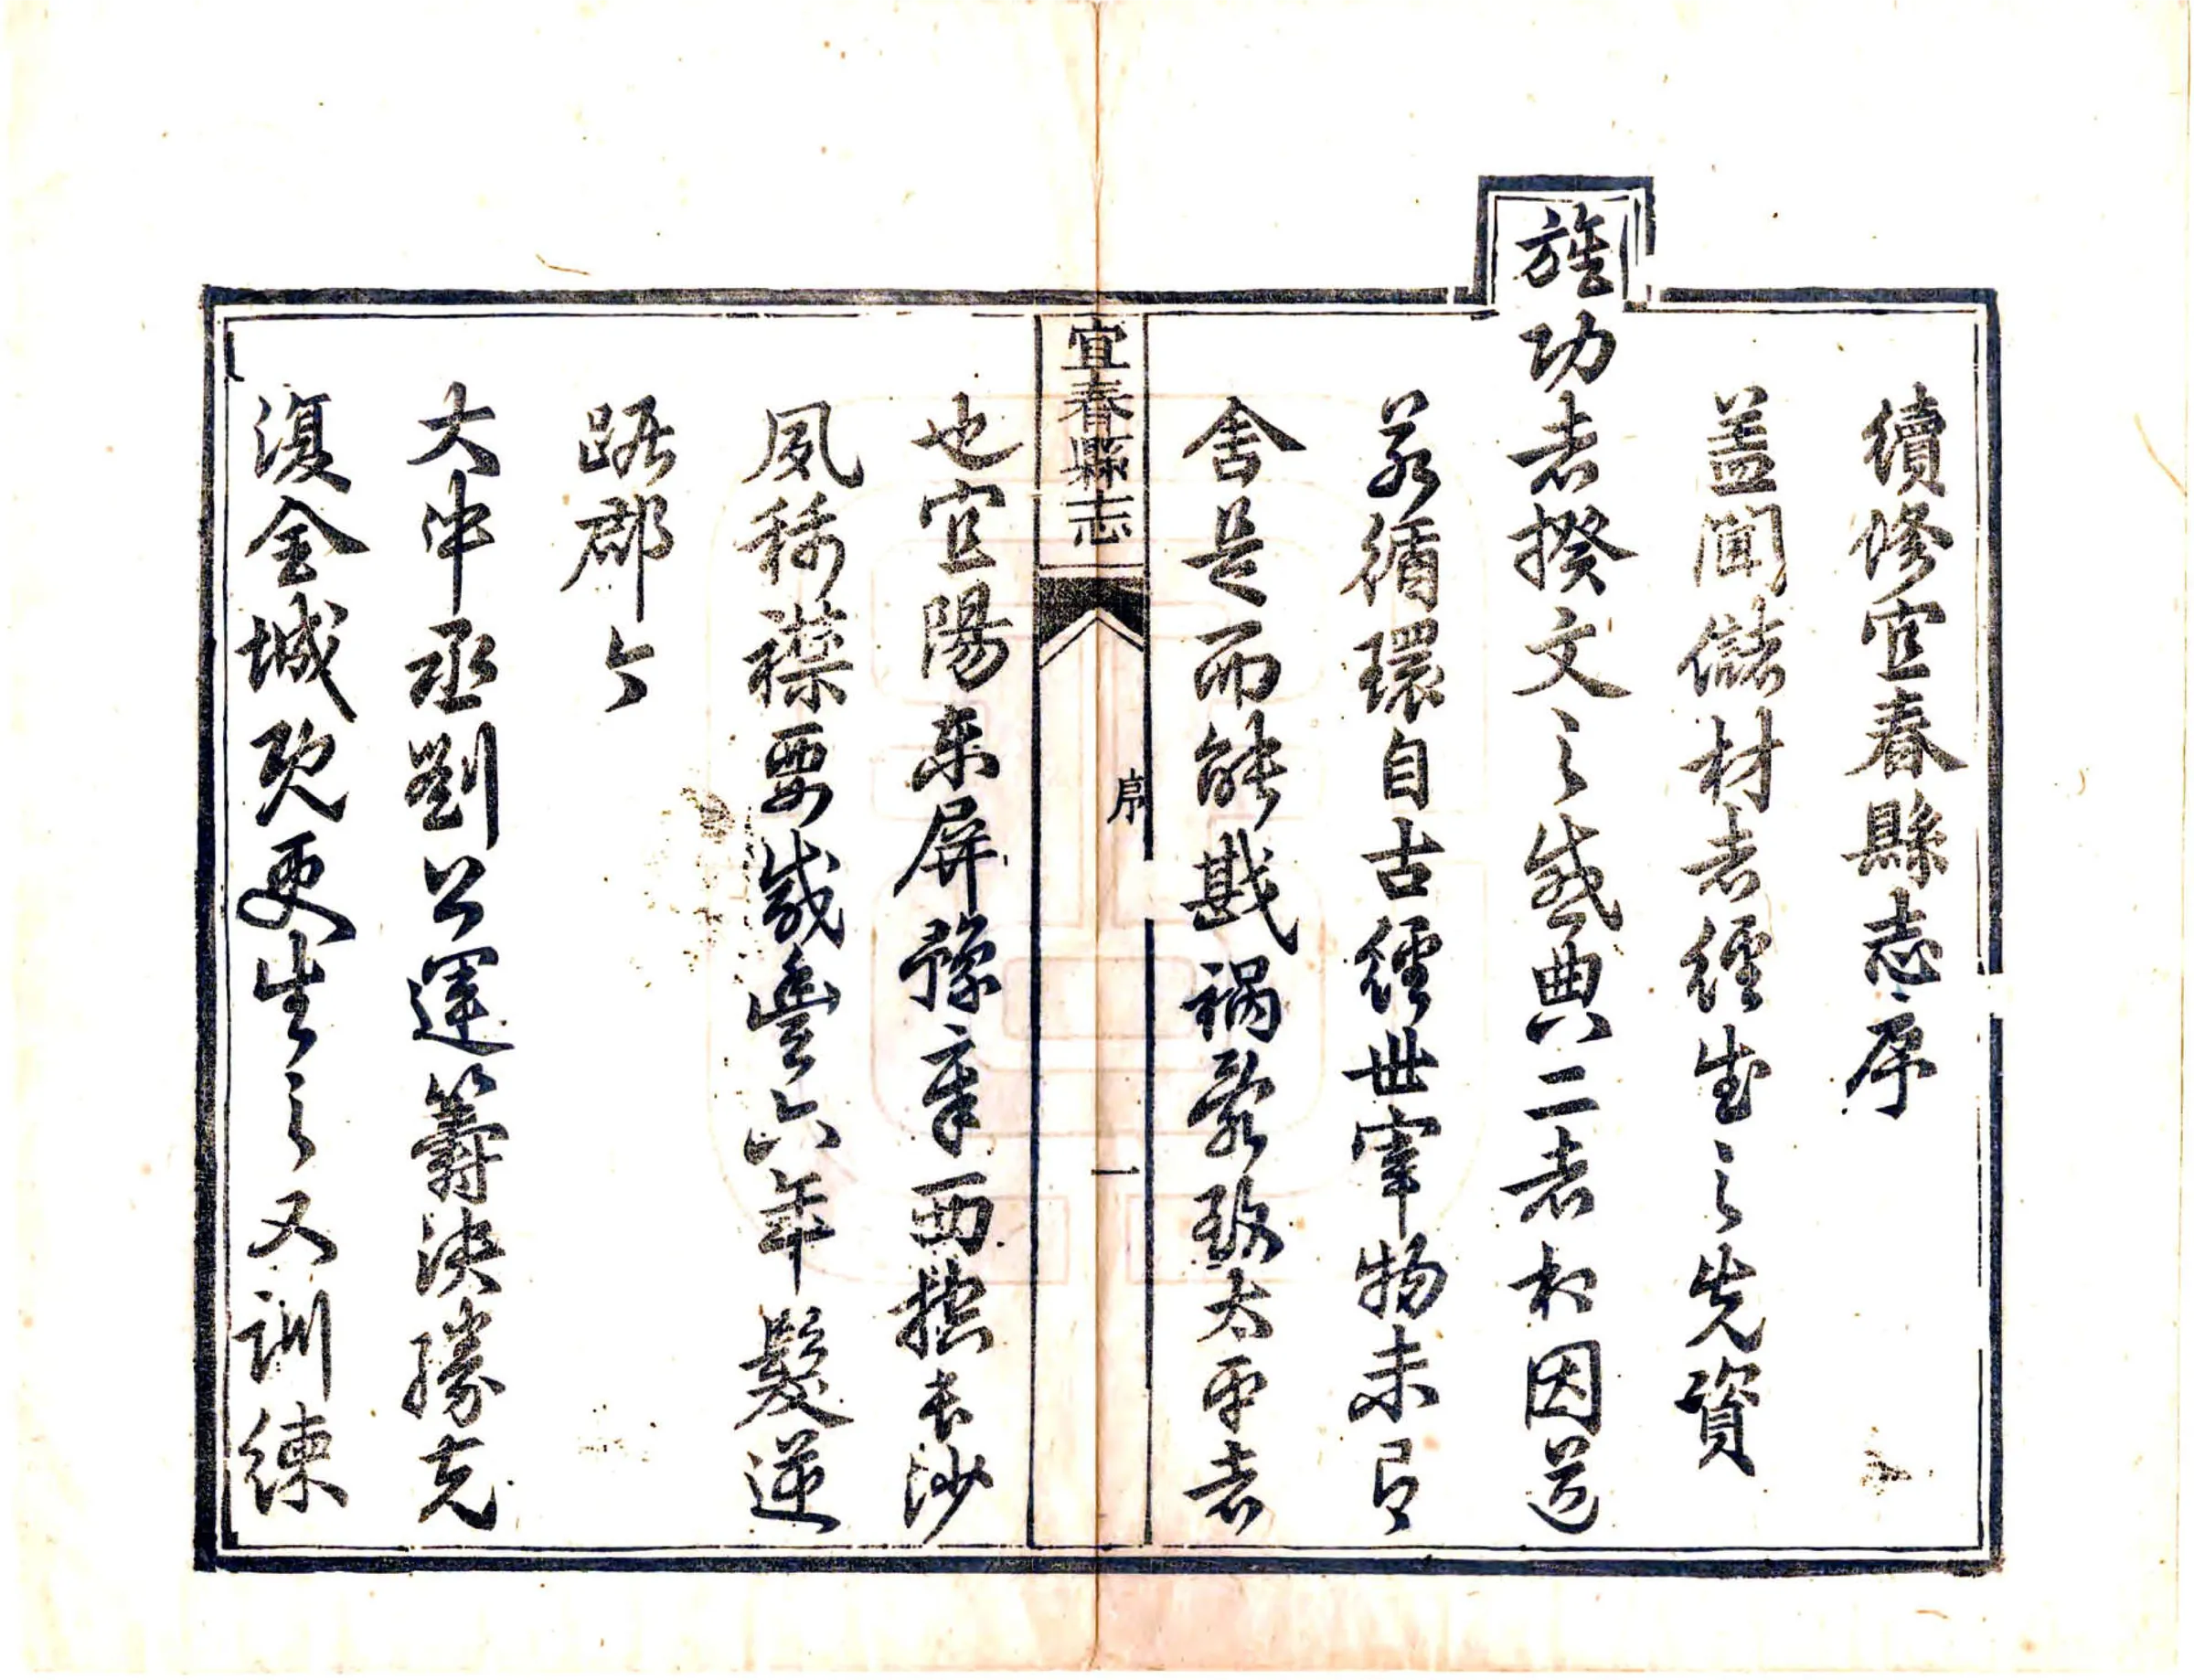 續修宜春縣志序
蓋聞儲材者經生之先資
旌功者揆文之盛典二者相因道
若循環自古經世宰物未有
舍是而能戡禍亂致太平者
宜春縣志 序 一
也宜陽東屏豫章西控長沙
夙稱襟要咸豐六年髮逆
踞郡今
大中丞劉公運籌決勝克
復金城既更生之又訓練